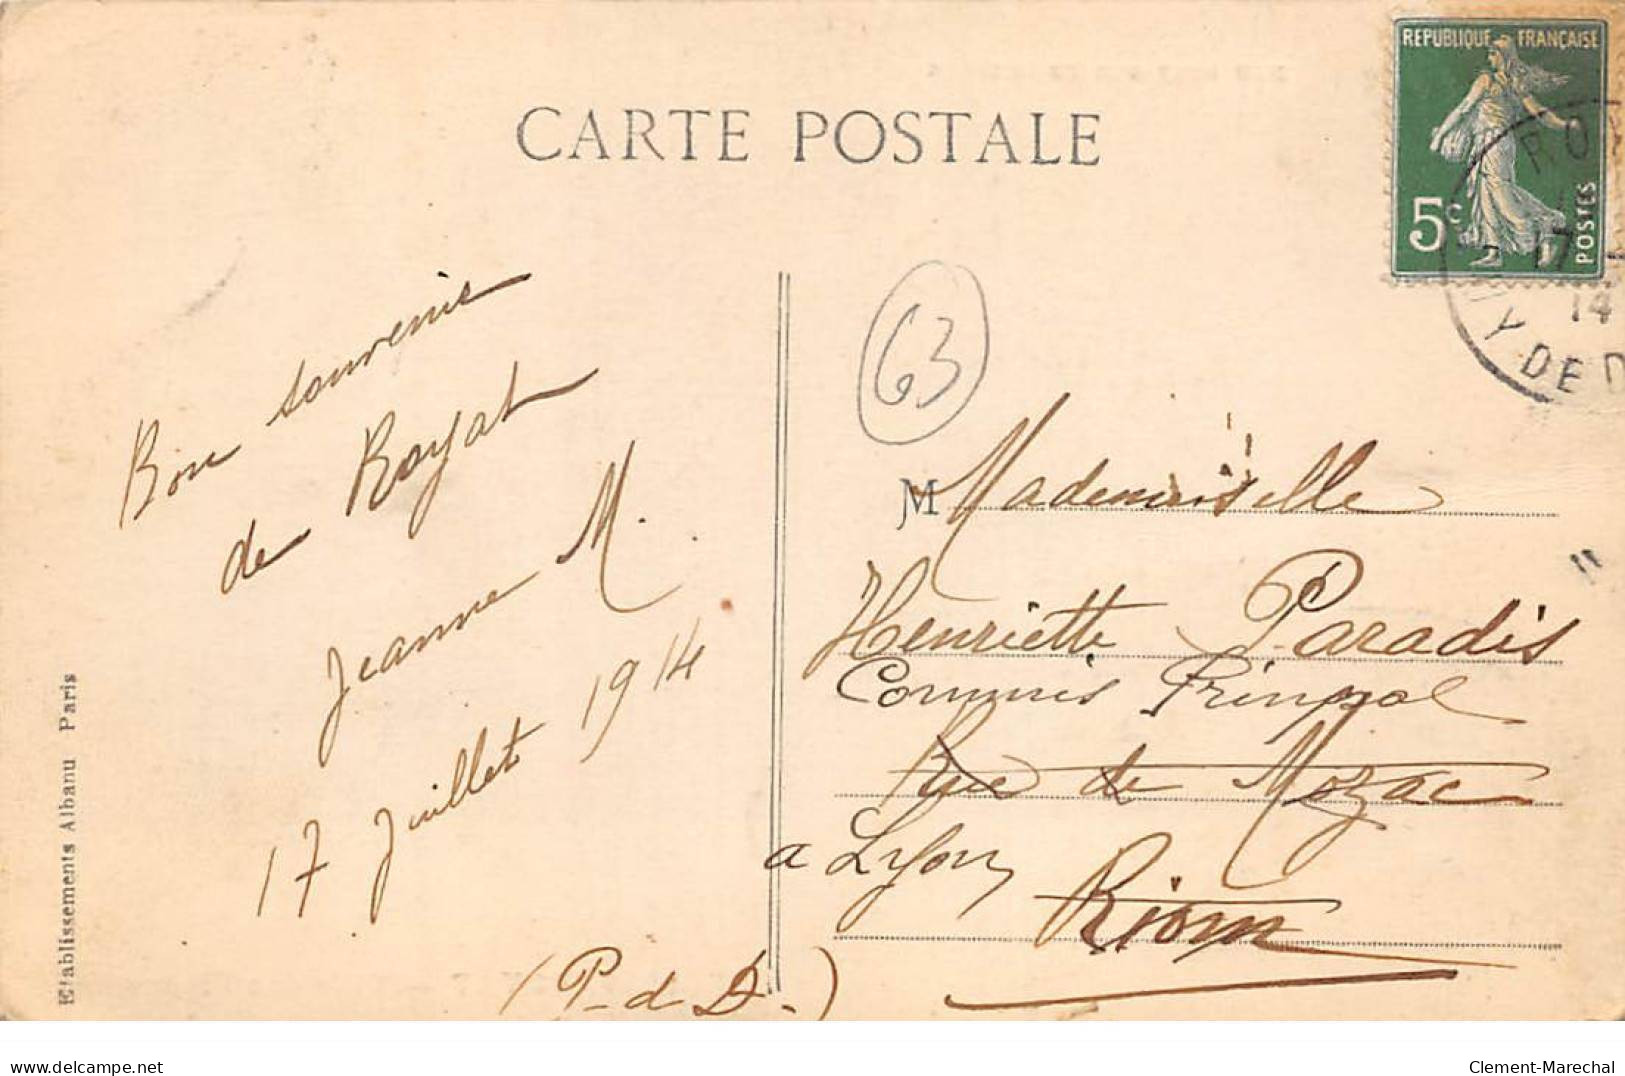 CARTE POSTALE
REPUBLIQUE FRANÇAISE
5c
POSTES
17
14
Y DE D
63
Bon souvenir
de Royat
Jeanne M.
17 Juillet 1914
M Mademoiselle
Henriette Paradis
Commis Prinpal
Rue de Mozac
a Lyon
Riom
(P-d D-)
Etablissements Albanu Paris
delcampe.net
Clement-Marechal